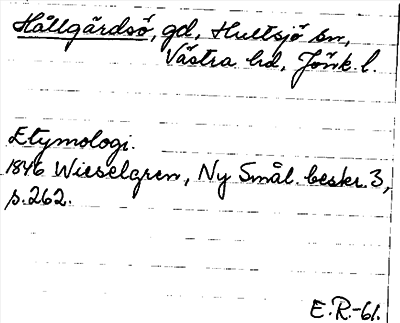 Hållgårdsö, gd, Hultsjö sn,
Västra hd, Jönk. l.
Etymologi.
1846 Wieselgren, Ny Smål. beskr. 3,
s. 262.
E.R.-61.